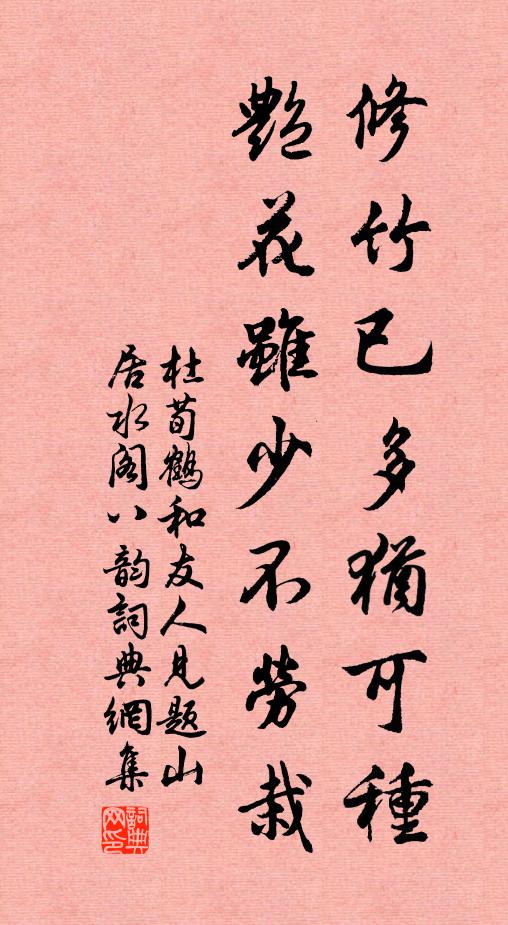 修竹已多猶可種
艷花雖少不勞栽
杜荀鶴和友人見題山
居水閣八韵詞典網集
詞典
网印